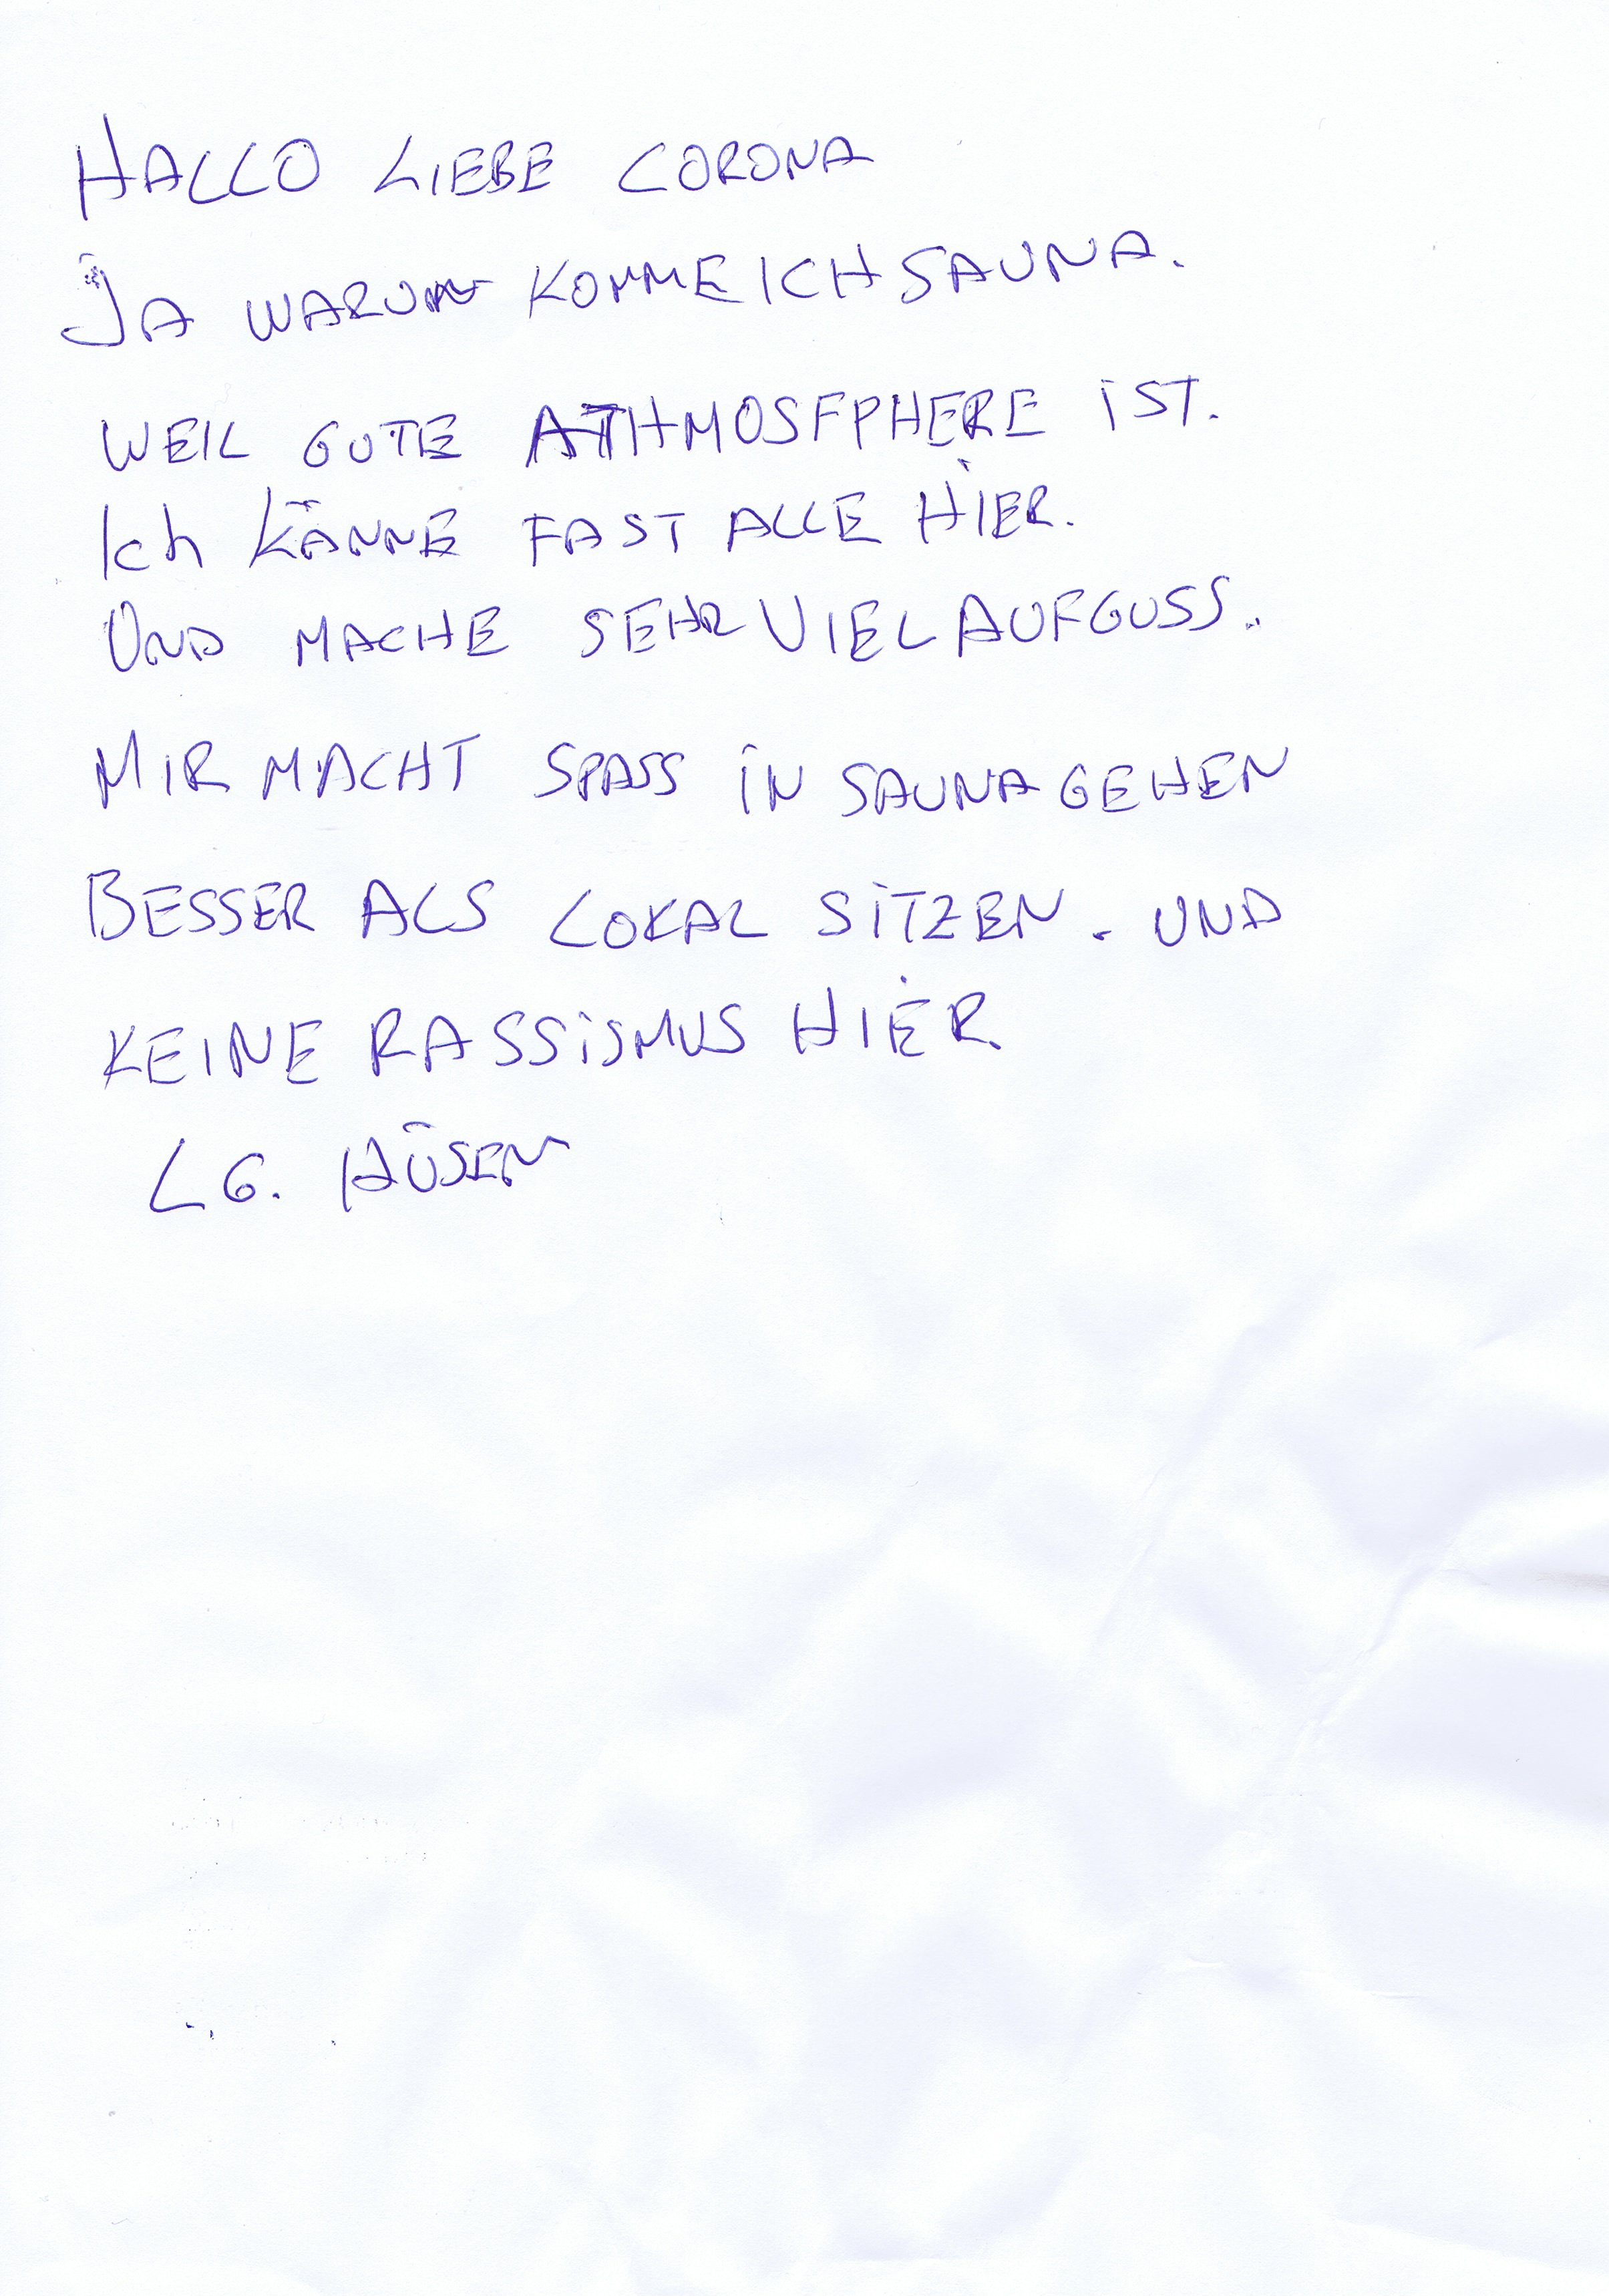 HALLO LIEBE CORONA
JA WARUM KOMME ICH SAUNA.
WEIL GUTE ATHMOSFPHERE IST.
Ich KÄNNE FAST ALLE HIER.
UND MACHE SEHR VIEL AUFGUSS.
MIR MACHT SPASS IN SAUNA GEHEN
BESSER ALS LOKAL SITZEN. UND
KEINE RASSISMUS HIER.
LG. HÜSEN